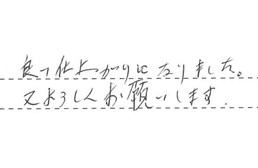 良い仕上がりになりました。
又よろしくお願いします.